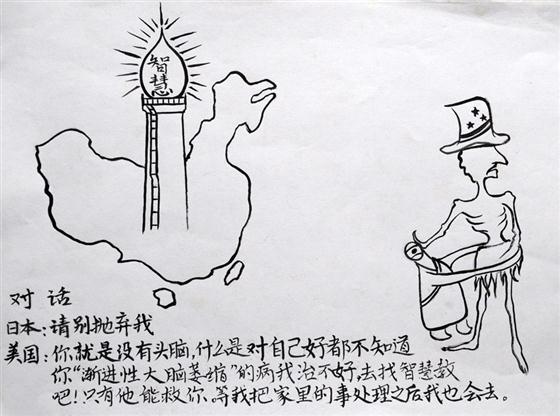 智慧
对话
日本：请别抛弃我
美国：你就是没有头脑，什么是对自己好都不知道
你“渐进性大脑萎缩”的病我治不好，去找智慧救
吧！只有他能救你。等我把家里的事处理之后我也会去。